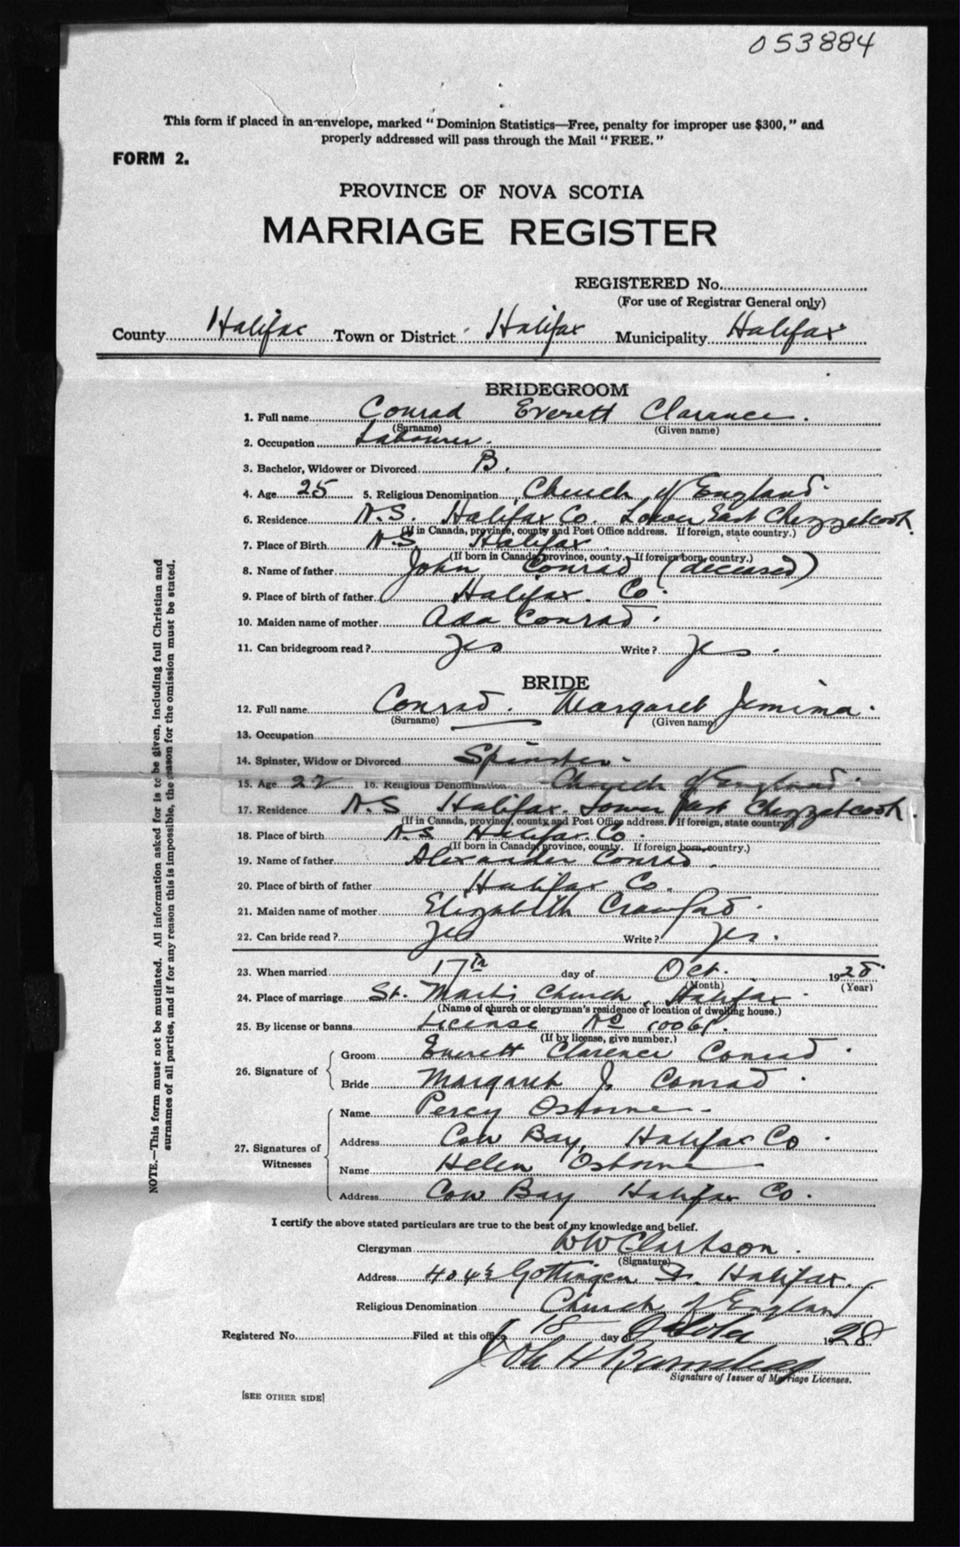 053884
This form if placed in an envelope, marked "Dominion Statistics—Free, penalty for improper use $300," and
properly addressed will pass through the Mail "FREE."
FORM 2.
PROVINCE OF NOVA SCOTIA
MARRIAGE REGISTER
REGISTERED No.
(For use of Registrar General only)
County Halifax Town or District Halifax Municipality Halifax
BRIDEGROOM
1. Full name Conrad Everett Clarance.
(Surname) (Given name)
2. Occupation Labourer.
3. Bachelor, Widower or Divorced B.
4. Age 25 5. Religious Denomination Church of England.
6. Residence N.S. Halifax Co. Lower East Chezzetcook
(If in Canada, province, county and Post Office address. If foreign, state country.)
7. Place of Birth N.S Halifax.
(If born in Canada, province, county. If foreign born, country.)
8. Name of father John Conrad (deceased)
9. Place of birth of father Halifax. Co.
10. Maiden name of mother Ada Conrad.
11. Can bridegroom read? Yes Write? Yes.
BRIDE
12. Full name Conrad. Margaret Jemima.
(Surname) (Given name)
13. Occupation
14. Spinster, Widow or Divorced Spinster.
15. Age 22 16. Religious Denomination Church of England.
17. Residence N.S Halifax. Lower East Chezzetcook.
(If in Canada, province, county and Post Office address. If foreign, state country)
18. Place of birth N.S Halifax Co.
(If born in Canada, province, county. If foreign born, country.)
19. Name of father Alexander Conrad.
20. Place of birth of father Halifax Co.
21. Maiden name of mother Elizabeth Crawford.
22. Can bride read? Yes Write? Yes.
23. When married 17th day of Oct. 1928.
(Month) (Year)
24. Place of marriage St. Mark's Church, Halifax.
(Name of church or clergyman's residence or location of dwelling house.)
25. By license or banns License No
(If by license, give number.)
26. Signature of Groom Everett Clarence Conrad.
Bride Margaret J. Conrad.
27. Signatures of Witnesses Name Percy Osborne.
Address Cow Bay, Halifax Co.
Name Helen Osborne
Address Cow Bay Halifax Co.
I certify the above stated particulars are true to the best of my knowledge and belief.
Clergyman WW Clarkson.
(Signature)
Address Gottingen St. Halifax.
Religious Denomination Church of England
Registered No. Filed at this office 18 day of October 1928
Signature of Issuer of Marriage Licenses.
[SEE OTHER SIDE]
NOTE.—This form must not be mutilated. All information asked for is to be given, including full Christian and
surnames of all parties, and if for any reason this is impossible, the reason for the omission must be stated.